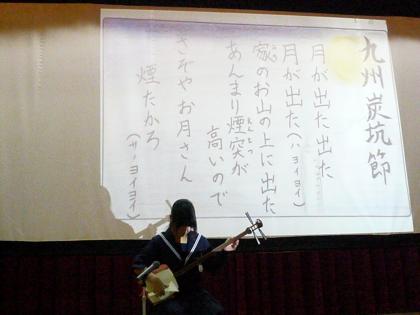 九州炭坑節
月が出た出た
月が出た(ハヨイヨイ)
家のお山の上に出た
あんまり煙突が
高いので
さぞやお月さん
煙たかろ
(サノヨイヨイ)